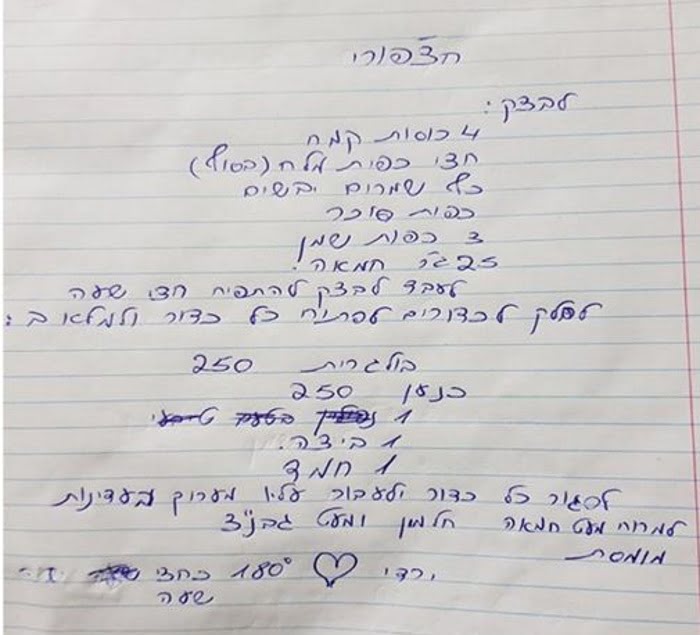 חצ'פורי
לבצק:
4 כוסות קמח
חצי כפית מלח (בסוף)
כף שמרים יבשים
כפות סוכר
3 כפות שמן
25 גר חמאה.
לעבד לבצק להתפיח חצי שעה
לחלק לכדורים לפתיח כל כדור ולמלא ב:
בולגרית 250
כנען 250
1 טבעי
1 ביצה.
1 חמד
לסגור כל כדור ולעבור עליו מערוך בעדינות
למרוח מעט חמאה חלמון ומעט גבנ"צ
מומסת
ירדי ♡ 180° כחצי
שעה